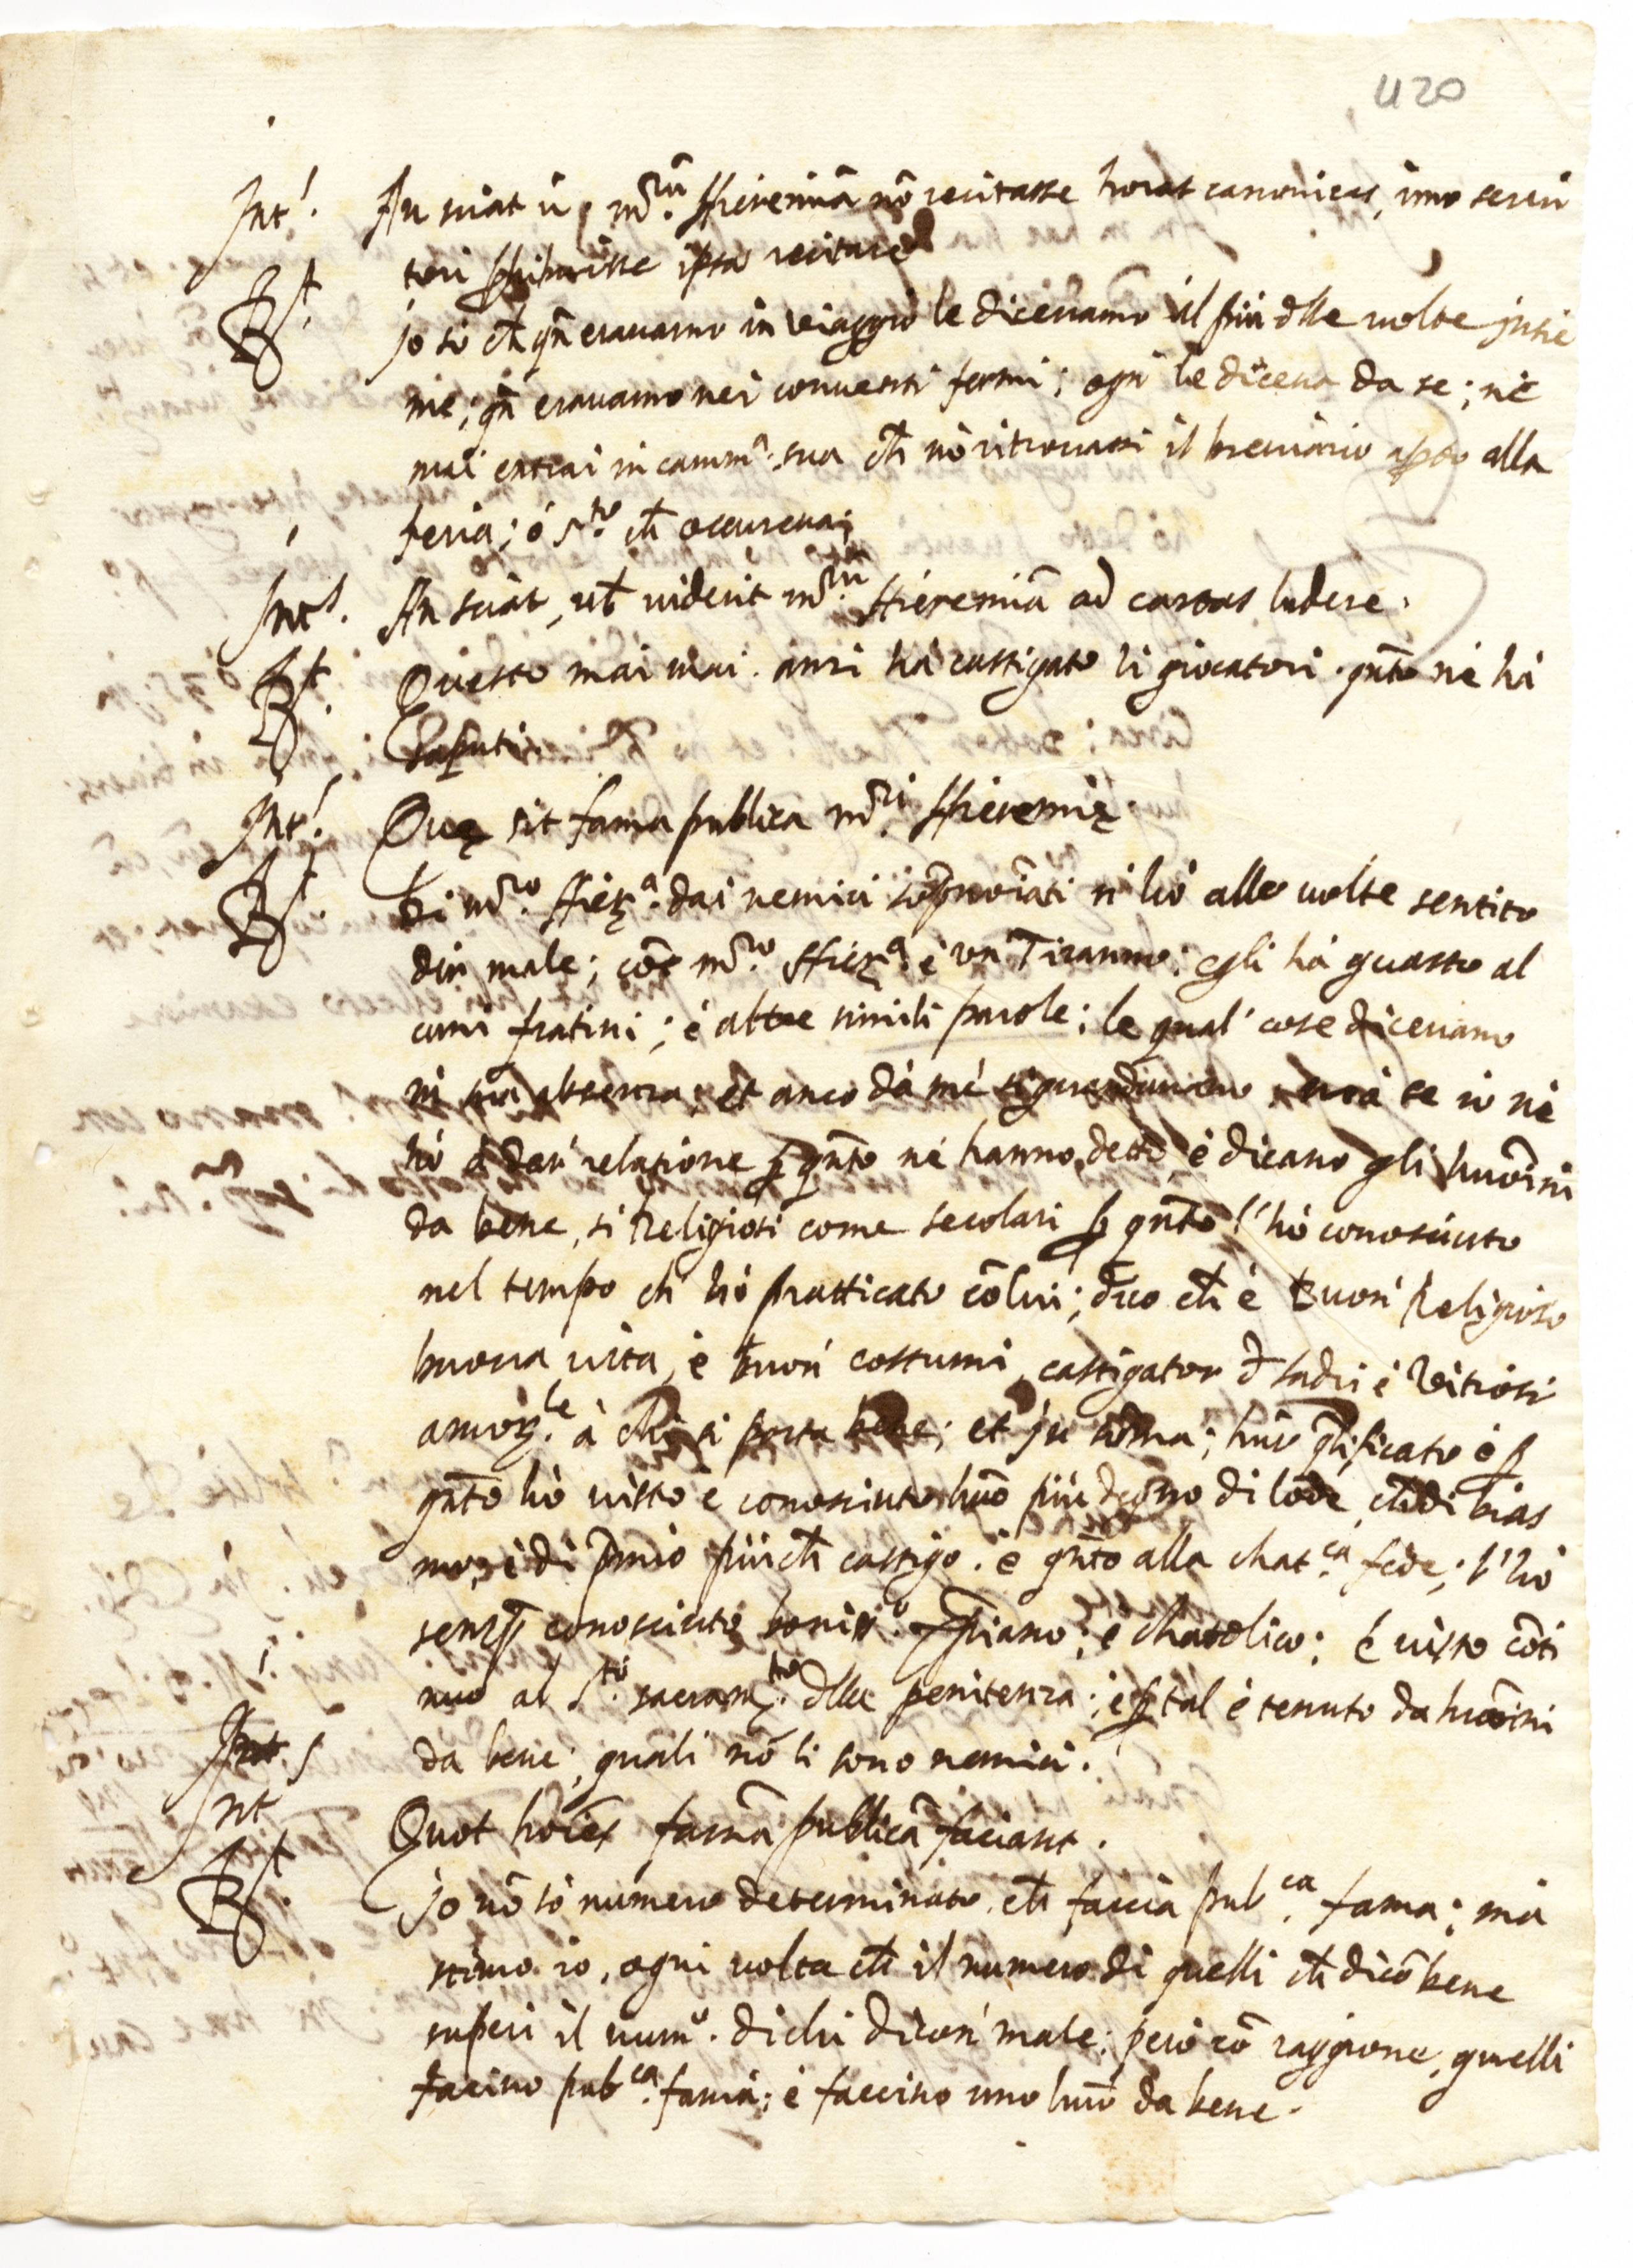 420
Int. An sciat ũ mr̃um Hieremiã nõ recitasse horas canonicas, imo servi
tori prohibuisse ipsa recitare
Rt. Jo sò ch̃ qñ eravamo in viaggio le dicevamo il più dlle volte insie
me; qñ eravamo nei conventi fermi; ogn' le diceva da se; nè
mai entrai in camm.a sua ch̃ nõ ritrovassi il breviario apto alla
feria; ó s.to ch̃ occureva;
Int. An sciat, vt̃ viderit mr̃um Hieremiã ad cartas ludere.
Rt. Questo mai mai. anzi hà castigato li giocatori. qñto ne hà
saputi.
Int. Quę sit fama publica mr̃i Hieremię.
Rt. Di mr̃o Hier.a dai nemici sopnoĩati n' hò alle volte sentito
dir male; cõe mr̃o Hier.a è un Tiranno; egli hà guasto al
cuni fratini; è altre simili parole; le qual' cose dicevano
in sua absenza; et anco dà mè si guardavano. mà se io nè
hò à dar' relatione p qñto né hanno detto, è dicano gli huoĩni
da bene, si Religiosi come secolari p qñto l'hò conosciuto
nel tempo ch' hò pratticato cõ lui; dico ch̃ è Buon' Religioso
buona vita, è buon' costumi, castigator d ladri è Vitiosi
amor.le à chi si porta bene; et in soma; hui' qlificato è p
qñto hò visto è conosciuto huõ più degno di lode ch̃ di bias
mo, è di p̃mio più ch̃ castigo. è qñto alla chat.ca fede; l'hò
semp̃ conosciuto boniss.o xp̃iano; è chatolico; è visto cõti
nuo al s.to sacram.to dlla penitenza; è p tal è tenuto da huoĩni
da bene; quali nõ li sono nemici.
Int Quot hoĩes famã publicã faciant.
Rt. Jo nõ sò numero determinato. ch̃ faccia pub.ca fama; mà
stimo io, ogni volta ch̃ il numero di quelli ch̃ dicõ bene
superi il num.o di chi dicon' male; però cõ raggione, quelli
faccino pub.ca fama; è faccino uno huõ da bene.